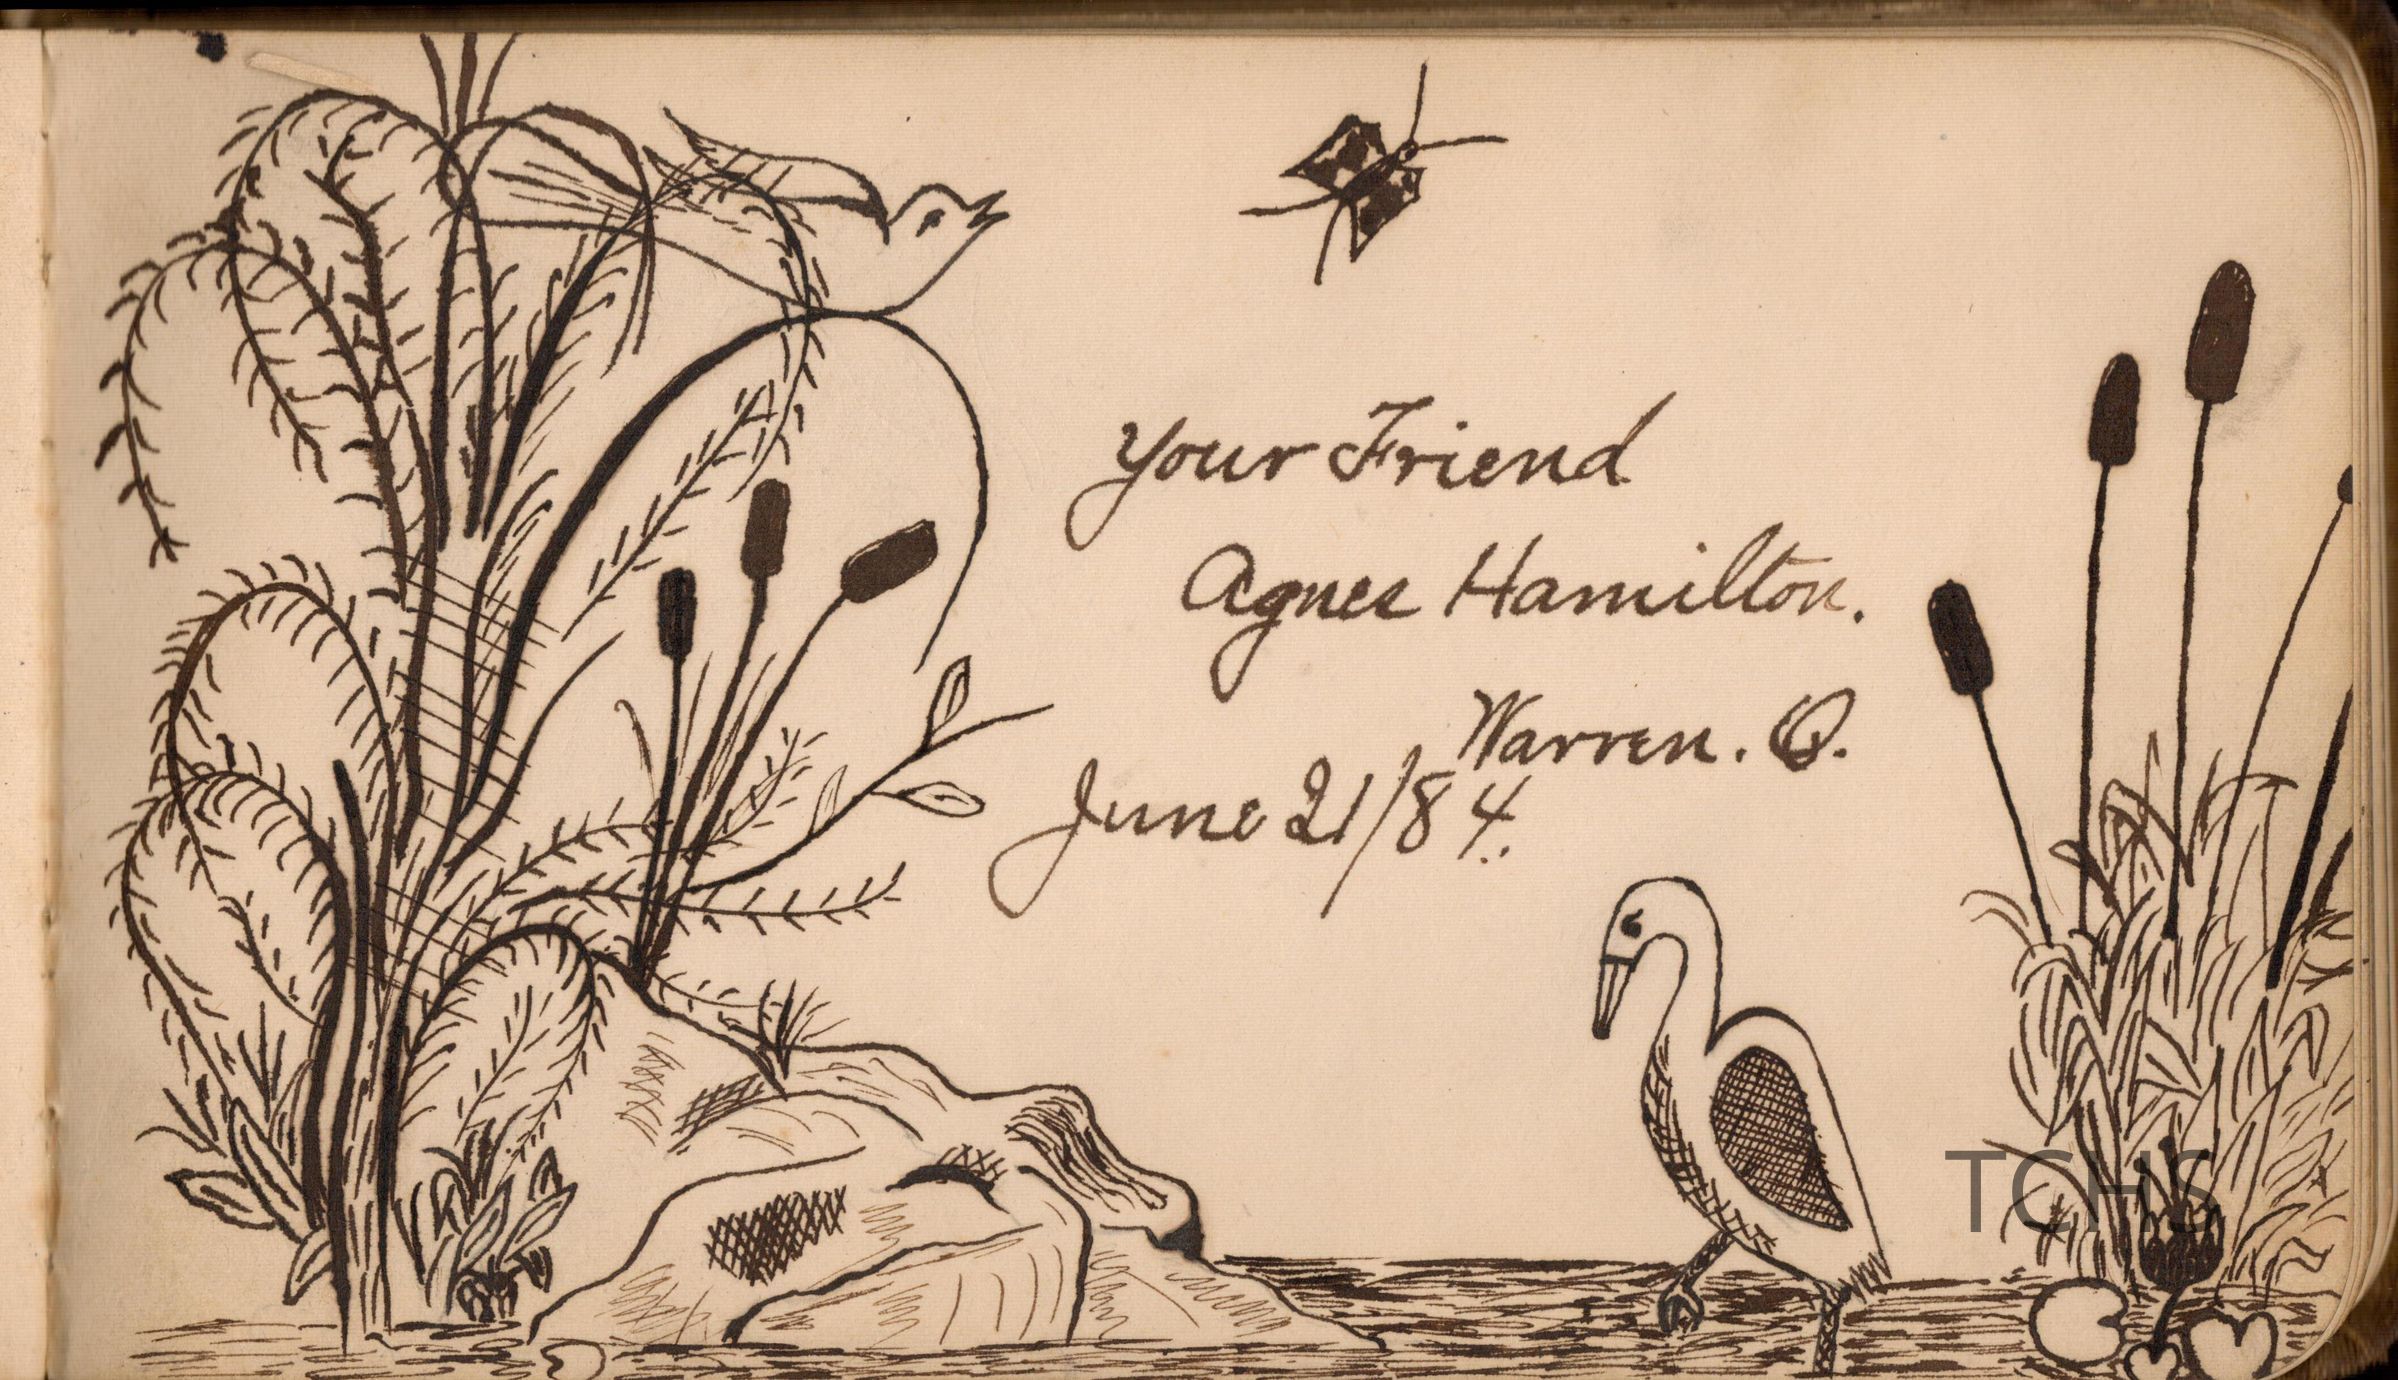 Your Friend
Agnes Hamilton.
Warren. O.
June 21/84.
TCHS